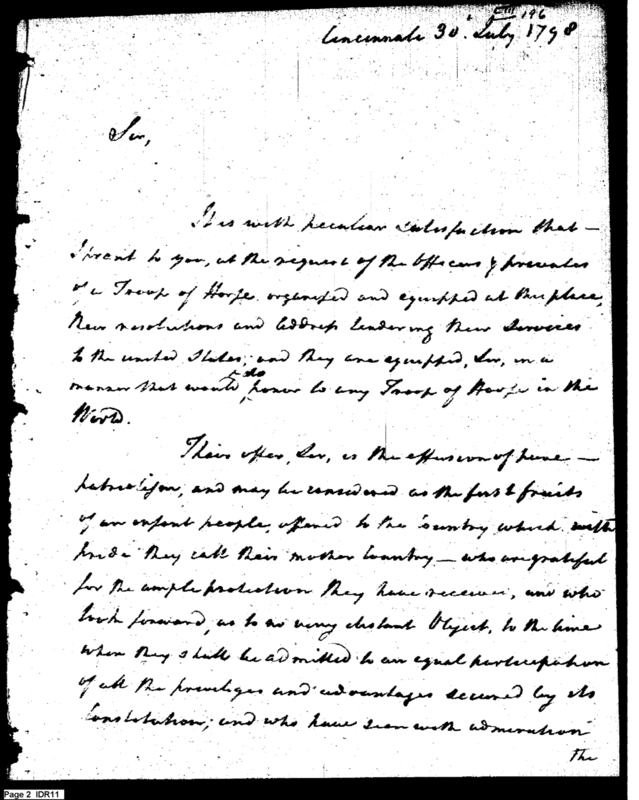 CIII 196
Cincinnati 30. July 1798
Sir,
It is with peculiar satisfaction that –
I present to you, at the request of the Officers & privates
of a Troop of Horse organised and equipped at this place,
their resolutions and address tendering their Services
to the united States; and they are equipped, Sir, in a
manner that would do honor to any Troop of Horse in the
World.
Their offer, Sir, is the effusion of pure –
patriotism, and may be considered as the first fruits
of an infant people, offered to the Country which with
pride they call their mother Country – who are grateful
for the ample protection they have received, and who
look forward, as to no very distant Object, to the time
when they shall be admitted to an equal participation
of all the priviliges and advantages secured by its
Constitution; and who have seen with admiration
The
Page 2 IDR11